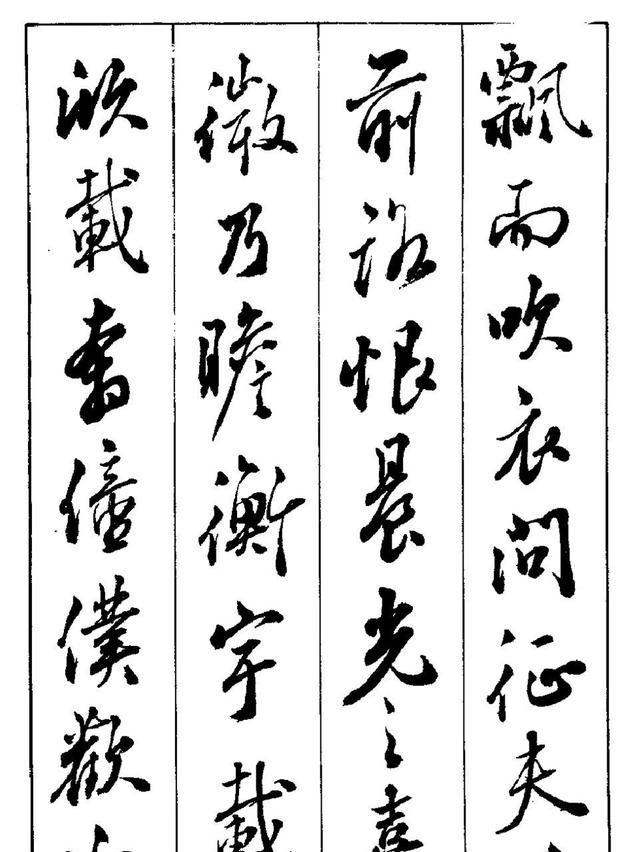 飄而吹衣問征夫
前路恨晨光之熹
微乃瞻衡宇載
欣載奔僮僕歡